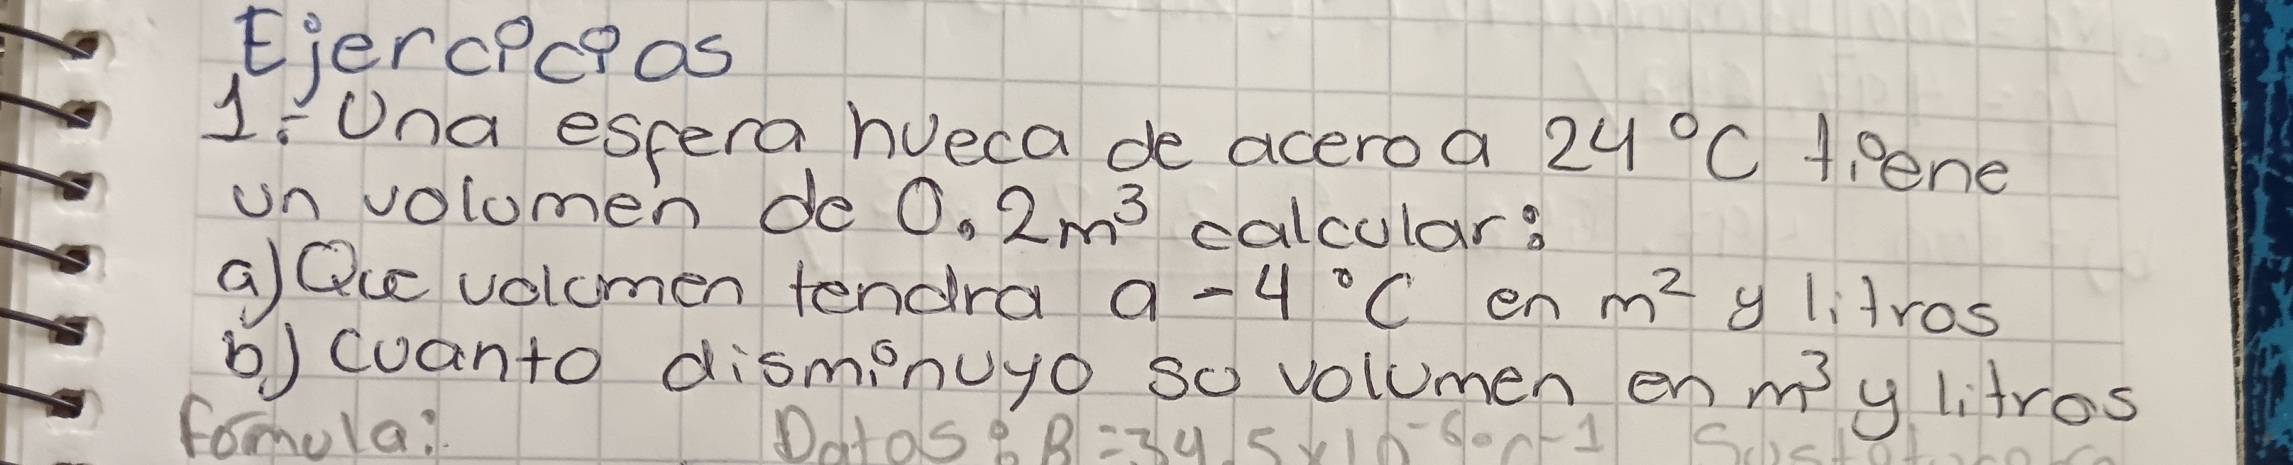 Ejercicios
1.- Una esfera hueca de acero a 24 °C tiene
un volumen de 0.2 m³ calcular:
a) Que volumen tendra a -4 °C en m² y litros
b) cuanto disminuyo su volumen en m³ y litros
Formula: Datos: B = 34.5 x 10⁻⁶ °C⁻¹